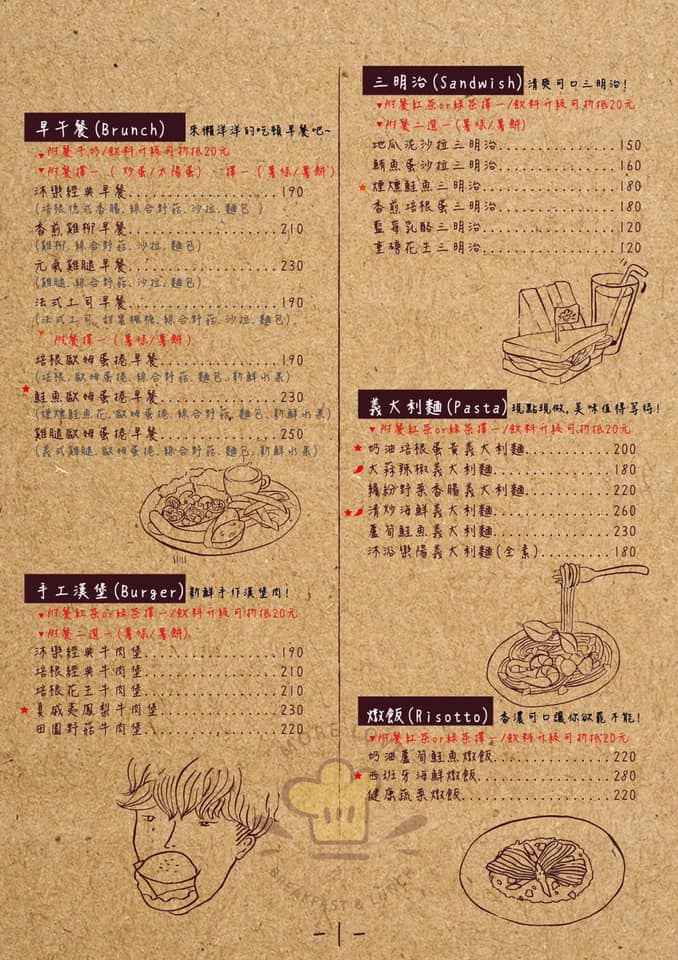 早午餐(Brunch) 來懶洋洋的吃頓早餐吧~
▼附餐牛奶/飲料升級可扣抵20元
▼附餐擇一(炒蛋/太陽蛋)、擇一(薯條/薯餅)
沐樂經典早餐...............190
(培根.德式香腸.綜合野菇.沙拉.麵包)
香煎雞柳早餐...............210
(雞柳.綜合野菇.沙拉.麵包)
元氣雞腿早餐...............230
(雞腿.綜合野菇.沙拉.麵包)
法式土司早餐...............190
(法式土司.甜薯楓糖.綜合野菇.沙拉.麵包)
附餐擇一(薯條/薯餅)
培根歐姆蛋捲早餐...........190
(培根.歐姆蛋捲.綜合野菇.麵包.新鮮水果)
★鮭魚歐姆蛋捲早餐...........230
(煙燻鮭魚花.歐姆蛋捲.綜合野菇.麵包.新鮮水果)
雞腿歐姆蛋捲早餐...........250
(義式雞腿.歐姆蛋捲.綜合野菇.麵包.新鮮水果)
手工漢堡(Burger) 新鮮手作漢堡肉!
▼附餐紅茶or綠茶擇一/飲料升級可扣抵20元
▼附餐二選一(薯條/薯餅)
沐樂經典牛肉堡.............190
培根經典牛肉堡.............210
培根花生牛肉堡.............210
★夏威夷鳳梨牛肉堡...........230
田園野菇牛肉堡.............220
三明治(Sandwish) 清爽可口三明治!
▼附餐紅茶or綠茶擇一/飲料升級可扣抵20元
▼附餐二選一(薯條/薯餅)
地瓜泥沙拉三明治...........150
鮪魚蛋沙拉三明治...........160
★煙燻鮭魚三明治.............180
香煎培根蛋三明治...........180
藍莓乳酪三明治.............120
重磅花生三明治.............120
義大利麵(Pasta) 現點現做,美味值得等待!
▼附餐紅茶or綠茶擇一/飲料升級可扣抵20元
★奶油培根蛋黃義大利麵.......200
大蒜辣椒義大利麵...........180
繽紛野菜香腸義大利麵.......220
★清炒海鮮義大利麵...........260
蘆筍鮭魚義大利麵...........230
沐浴樂陽義大利麵(全素).....180
燉飯(Risotto) 香濃可口讓你欲罷不能!
▼附餐紅茶or綠茶擇一/飲料升級可扣抵20元
奶油蘆筍鮭魚燉飯...........220
★西班牙海鮮燉飯.............280
健康蔬菜燉飯...............220
BREAKFAST & LUNCH
-1-